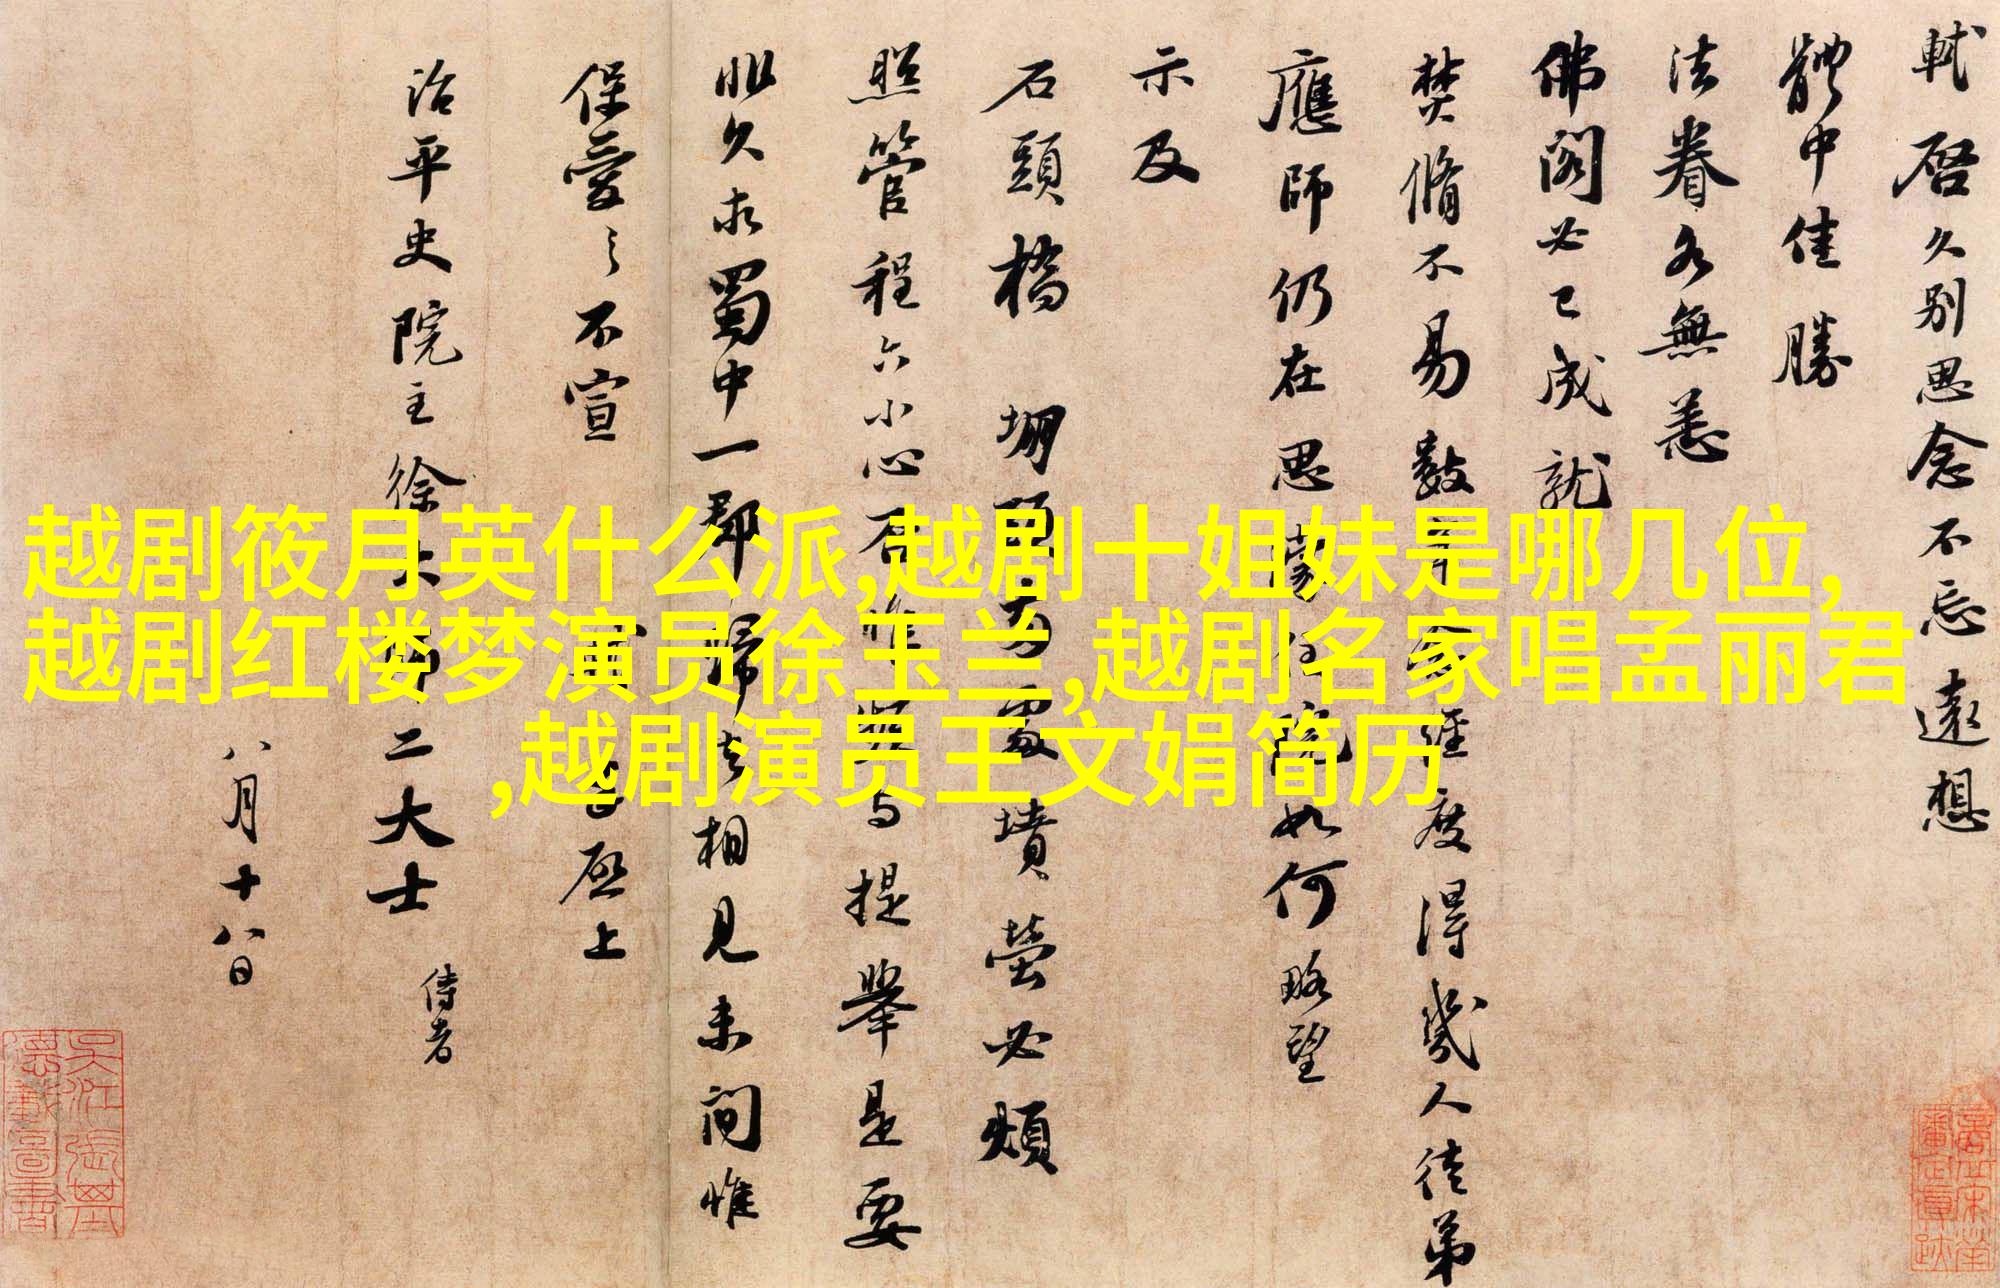 軾啓久别思念不忘遠想
體中佳勝
法眷各無恙
佛閣必已成就
焚脩不易數年念經度得幾人徒弟
應師仍在思蒙住院如何略望
示及
石頭橋 堋頭兩處墳塋必煩
照管程六小心否惟頻與提舉是要
非久求蜀中一郡歸去相見未間惟
保愛之不宣 軾手啓上
治平史院主徐大師二大士 侍者
八月十八日
越剧筱月英什么派,越剧十姐妹是哪几位,
越剧红楼梦演员徐玉兰,越剧名家唱孟丽君
,越剧演员王文娟简历